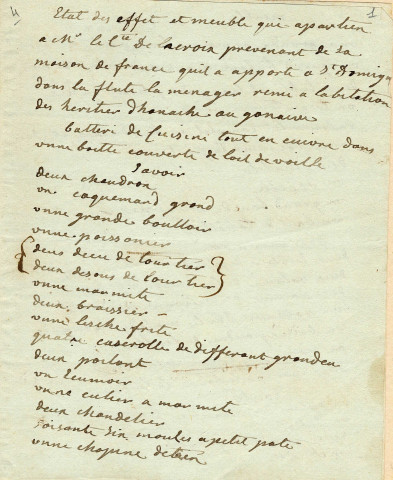 4 1
Etat des effet et meuble qui apartien
a Mr le Cte De lacroix prevenant de sa
maison de france quil a apporte a St Domigu
dans la flute la menager remi a labitation
des heritier dhanache au gonaive
batteri de Cuiseni tout en cuivre dans
unne boitte couverte de toil de voille
Savoir
deux chaudron
un coquemard grand
unne grande boulloir
unne poissonier
deus desu de tourtier
deux desous de tourtier
unne marmite
deux braissier
unne lische frite
quatre caserolle de differant grandeu
deux poilont
un Ecumoir
unne culier a marmite
deux chandelier
soisante six moules a petit paté
unne